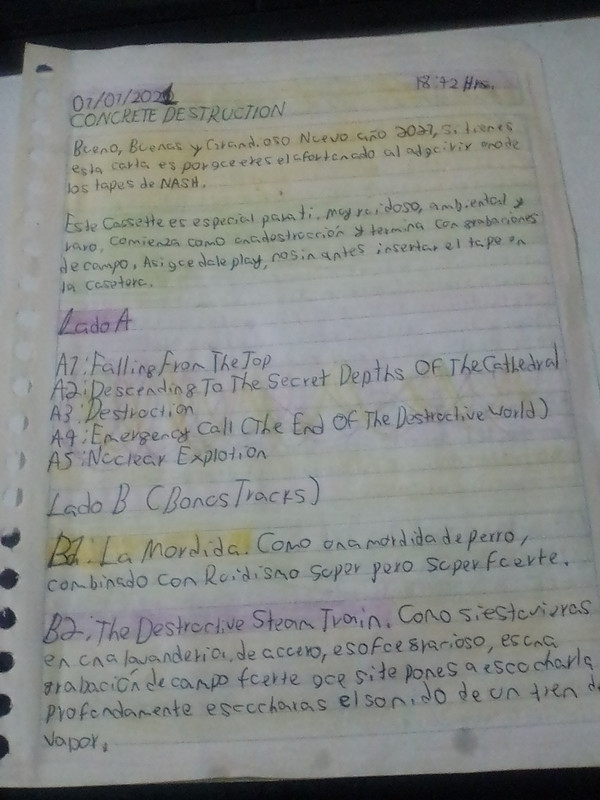 01/01/2021
18:42 Hrs.
CONCRETE DESTRUCTION
Bueno, Buenas y Grandioso Nuevo año 2021, si tienes
esta carta es porque eres el afortunado al adquirir uno de
los tapes de NASH.
Este Cassette es especial para ti, muy ruidoso, ambiental y
raro, comienza como una destrucción y termina con grabaciones
de campo, Asi que dale play, no sin antes insertar el tape en
la casetera.
Lado A
A1: Falling From The Top
A2: Descending To The Secret Depths Of The Cathedral
A3: Destruction
A4: Emergency Call (The End Of The Destructive World)
A5: Nuclear Explotion
Lado B (Bonus Tracks)
B1: La Mordida. Como una mordida de perro,
combinado con Ruidismo super pero super fuerte.
B2: The Destructive Steam Train. Como si estuvieras
en una lavanderia, de accero, eso fue gracioso, es una
grabación de campo fuerte que si te pones a escucharla
profundamente escucharas el sonido de un tren de
vapor.